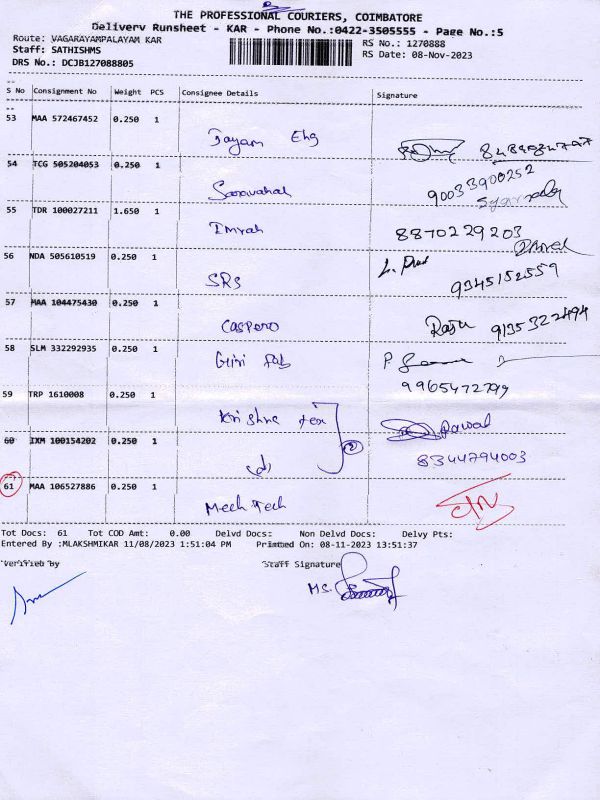 THE PROFESSIONAL COURIERS, COIMBATORE
Delivery Runsheet - KAR - Phone No.:0422-3505555 - Page No.:5
Route: VAGARAYAMPALAYAM KAR RS No.: 1270888
Staff: SATHISHMS RS Date: 08-Nov-2023
DRS No.: DCJB127088805
S No Consignment No Weight PCS Consignee Details Signature
53 MAA 572467452 0.250 1
Jayam Eng
54 TCG 505204053 0.250 1
Saravanal 90033900252
55 TDR 100027211 1.650 1
Imrah 8870229203
56 NDA 505610519 0.250 1
SRS 9345152559
57 MAA 104475430 0.250 1
Caspero Raju 9135322494
58 SLM 332292935 0.250 1
Giri fab P
9965472799
59 TRP 1610008 0.250 1
Krishna tex Pawal
60 IXM 100154202 0.250 1
do 2 8344794003
61 MAA 106527886 0.250 1
Mech Tech
Tot Docs: 61 Tot COD Amt: 0.00 Delvd Docs: Non Delvd Docs: Delvy Pts:
Entered By :MLAKSHMIKAR 11/08/2023 1:51:04 PM Printed On: 08-11-2023 13:51:37
Verified by Staff Signature
MS.